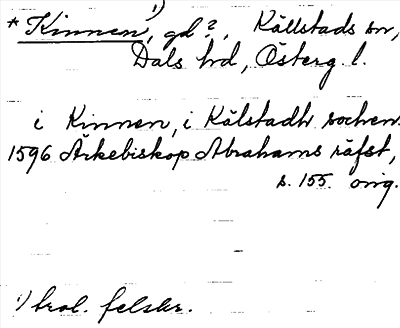 * Kinnen¹⁾, gd?, Källstads sn,
Dals hd, Österg. l.
i Kinnen, i Kälstadh sochen
1596 Ärkebiskop Abrahams räfst,
s. 155. orig.
¹⁾ trol. felskr.